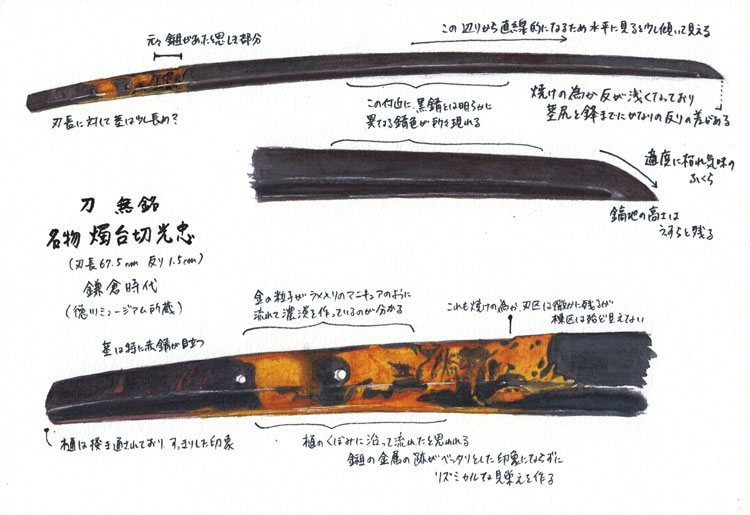 元々鎺があたと思しき部分
この辺りから直線的になるため水平に見ると少し傾いて見える
刃長に対して茎は少し長め？
この付近に、黒錆とは明らかに
異なる錆色が斬々現れる
焼けの為か反が浅くなっており
茎尻と鋒までにかなりの反りの差がある
適度に枯れ気味の
ふくら
鎬地の高さは
うすらと残る
刀 無銘
名物 燭台切光忠
(刃長67.5cm 反り1.5cm)
鎌倉時代
(徳川ミュージアム所蔵)
金の粒子がラメ入りのマニキュアのように
流れて濃淡を作っているのが分かる
これも焼けの為か、刃区は微かに残るが
棟区は殆ど見えない
茎は特に赤錆が目立つ
樋は掻き通されており、すっきりした印象
樋のくぼみに沿って流れたと思われる
鎺の金属の跡がベッタリとした印象にならずに
リズミカルな見栄えを作る